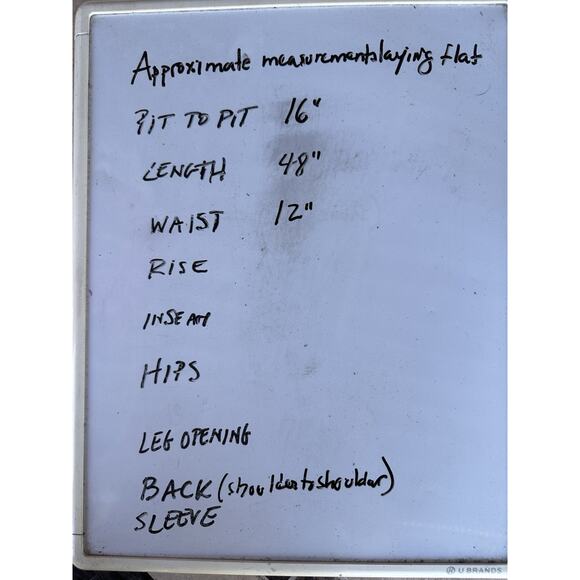 Approximate measurements laying flat
PIT TO PIT 16"
LENGTH 48"
WAIST 12"
RISE
INSEAM
HIPS
LEG OPENING
BACK (shoulder to shoulder)
SLEEVE
U BRANDS